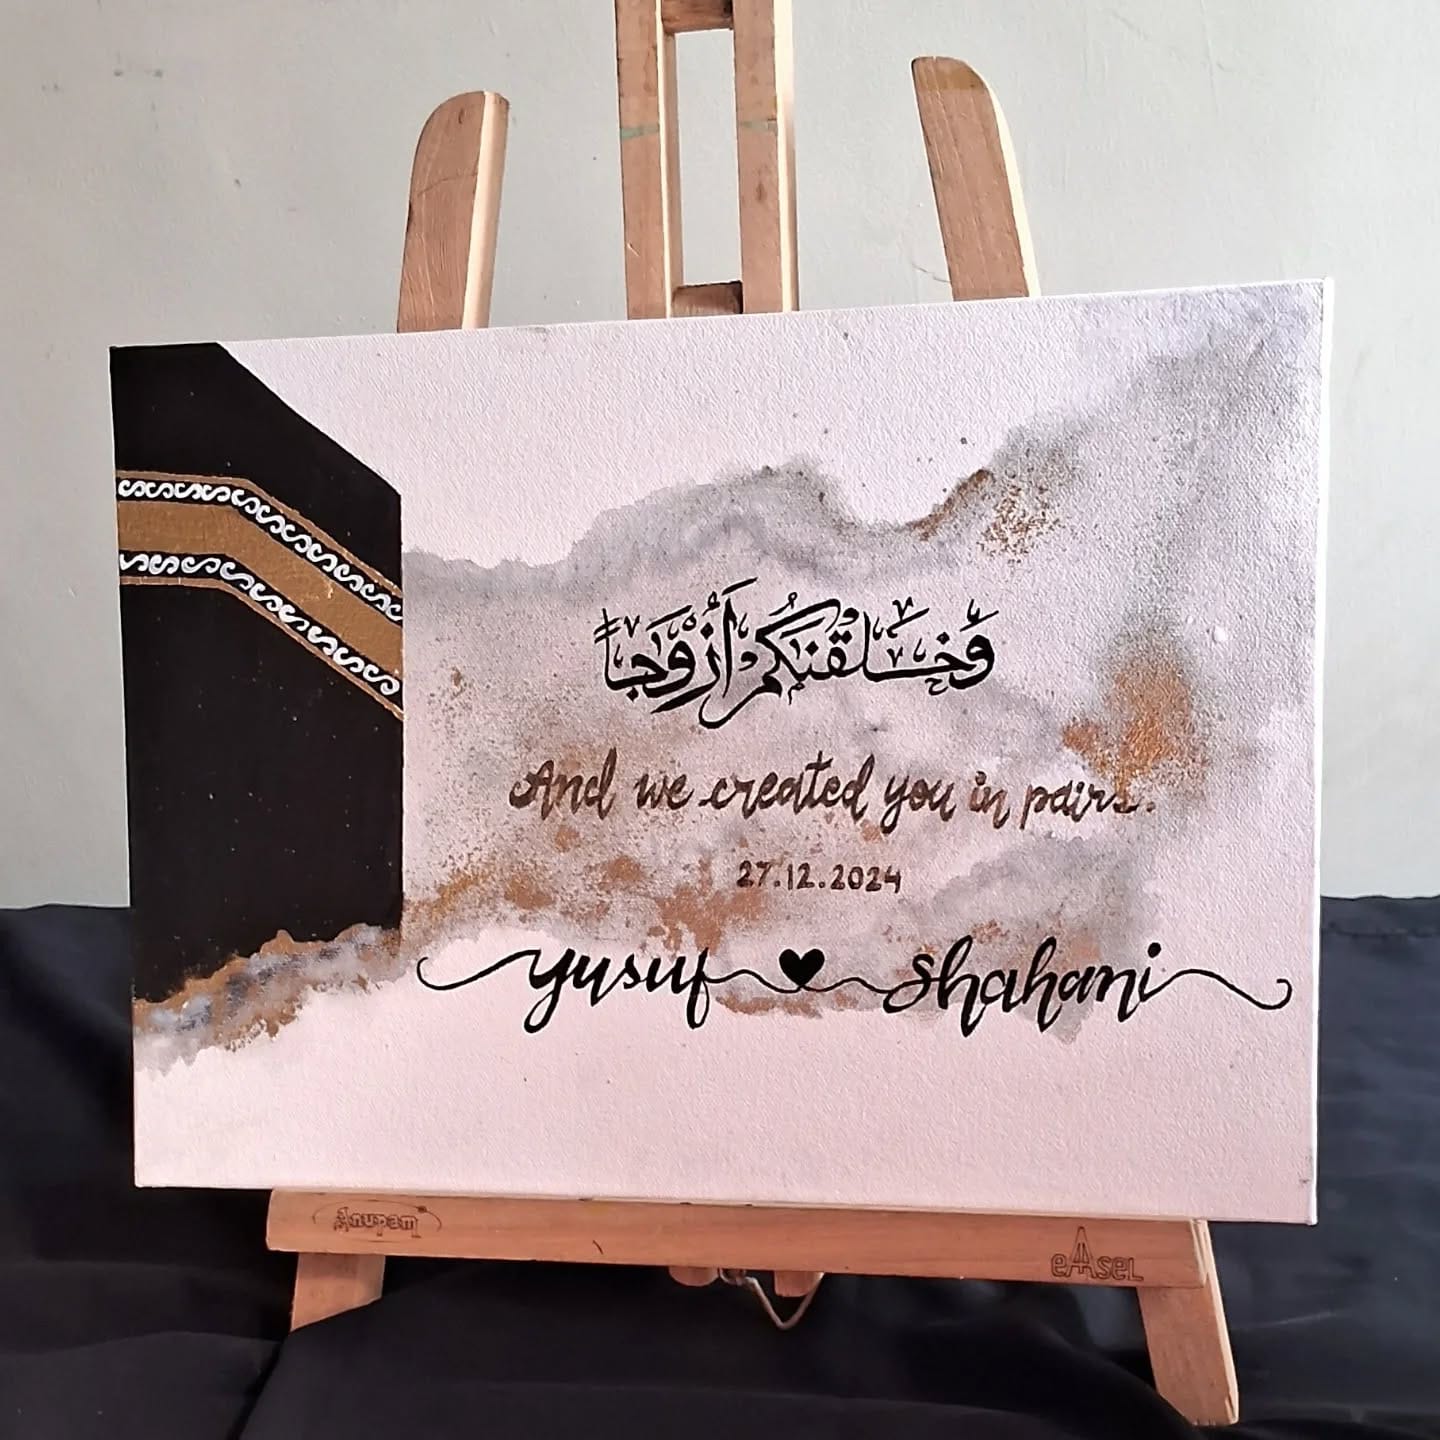 وَخَلَقْنَكُمْ أَزْوَجًا
And we created you in pairs.
27.12.2024
yusuf ♥ shahani
Anupam®
eAsel